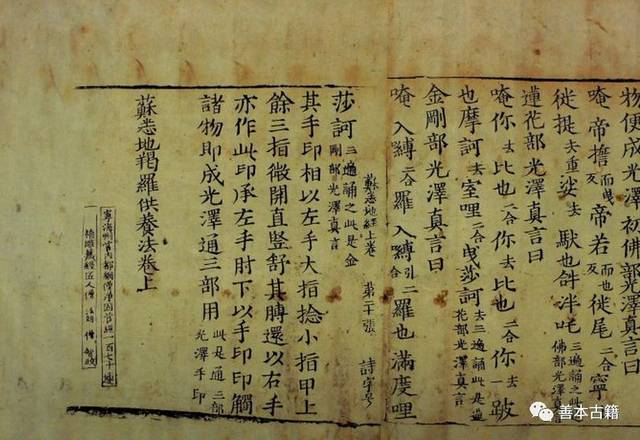 物便成光澤初佛部光澤真言曰
唵帝擔而曳反帝若而也反徙尾二合寧
徙揕去重娑去馱也𤙖泮吒三遍誦之此是佛部光澤真言
蓮花部光澤真言曰
唵你去比也二合你去比也二合你去一跛
也摩訶去室哩二合曳莎訶去三遍誦此是蓮花部光澤真言
金剛部光澤真言曰
唵入縛二合羅入縛引二合羅也滿度哩
蘇悉地經上卷 第二十張 詩字号
莎訶三遍誦之此是金剛部光澤真言
其手印相以左手大指捻小指甲上
餘三指微開直豎舒其膊還以右手
亦作此印承左手肘下以手印印觸
諸物即成光澤通三部用此是通三部光澤手印
蘇悉地羯羅供養法卷上
寧海州管內都綱僧
經一百七十
善本古籍